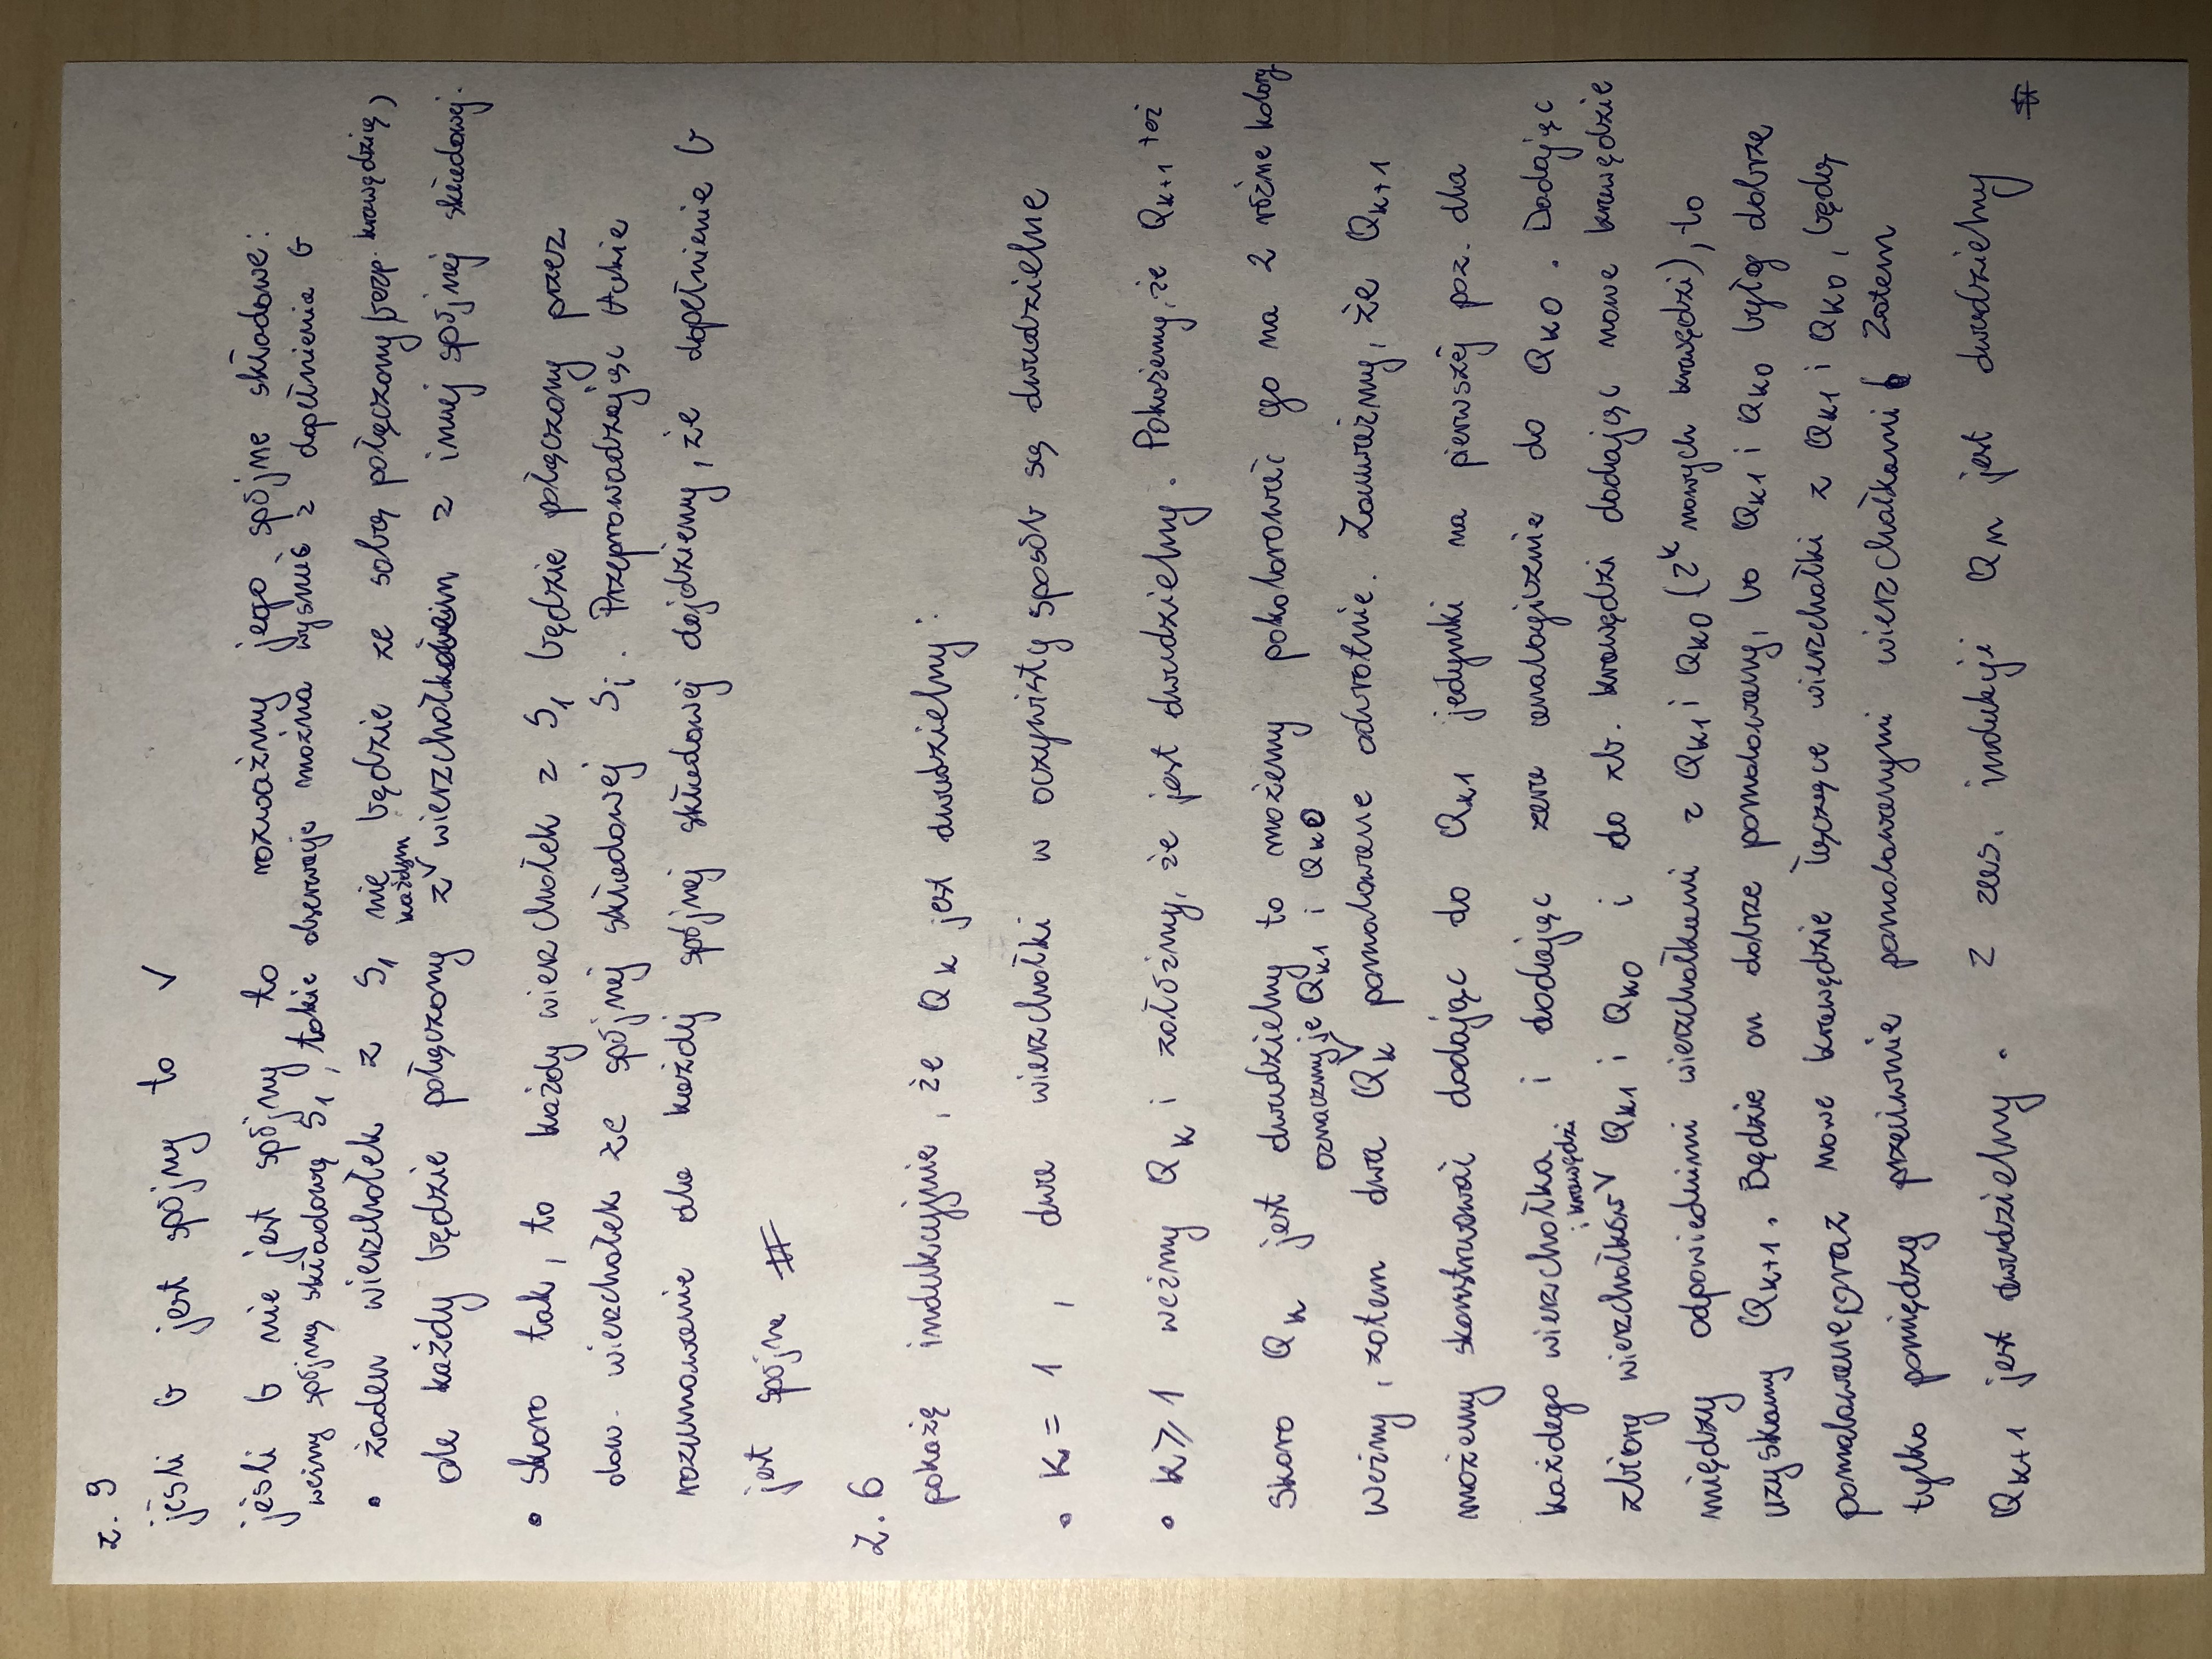 z. 9
jeśli G jest spójny to ✓
jeśli G nie jest spójny to rozważmy jego spójne składowe:
weźmy spójną składową S₁, takie obserwacje można wysnuć z dopełnienia G
• żaden wierzchołek z S₁ nie będzie ze sobą połączony (bezp. krawędzią),
każdym
ale każdy będzie połączony z ∨ wierzchołkiem z innej spójnej składowej.
• Skoro tak, to każdy wierzchołek z S₁ będzie połączony przez
dow. wierzchołek ze spójnej składowej Sᵢ. Przeprowadzając takie
rozumowanie dla każdej spójnej składowej dojdziemy, że dopełnienie G
jest spójne #
Z. 6
pokażę indukcyjnie, że Qₖ jest dwudzielny:
• k = 1, dwa wierzchołki w oczywisty sposób są dwudzielne
• k ⩾ 1 weźmy Qₖ i załóżmy, że jest dwudzielny. Pokażemy, że Qₖ₊₁ też
Skoro Qₖ jest dwudzielny to możemy pokolorować go na 2 różne kolory
oznaczmy je Qₖ₁ i Qₖ₀
Weźmy, zatem dwa Qₖ ∨ pomalowane odwrotnie. Zauważmy, że Qₖ₊₁
możemy skonstruować dodając do Qₖ₁ jedynki na pierwszej poz. dla
każdego wierzchołka i dodając zera analogicznie do Qₖ₀. Dodając
i krawędzi
zbiory wierzchołków ∨ Qₖ₁ i Qₖ₀ i do zb. krawędzi dodając nowe krawędzie
między odpowiednimi wierzchołkami z Qₖ₁ i Qₖ₀ (2ᵏ nowych krawędzi), to
uzyskamy Qₖ₊₁. Będzie on dobrze pomalowany, bo Qₖ₁ i Qₖ₀ były dobrze
pomalowane, oraz nowe krawędzie łączące wierzchołki z Qₖ₁ i Qₖ₀, będą
tylko pomiędzy przeciwnie pomalowanymi wierzchołkami. Zatem
Qₖ₊₁ jest dwudzielny. Z zas. indukcji Qₙ jest dwudzielny
#